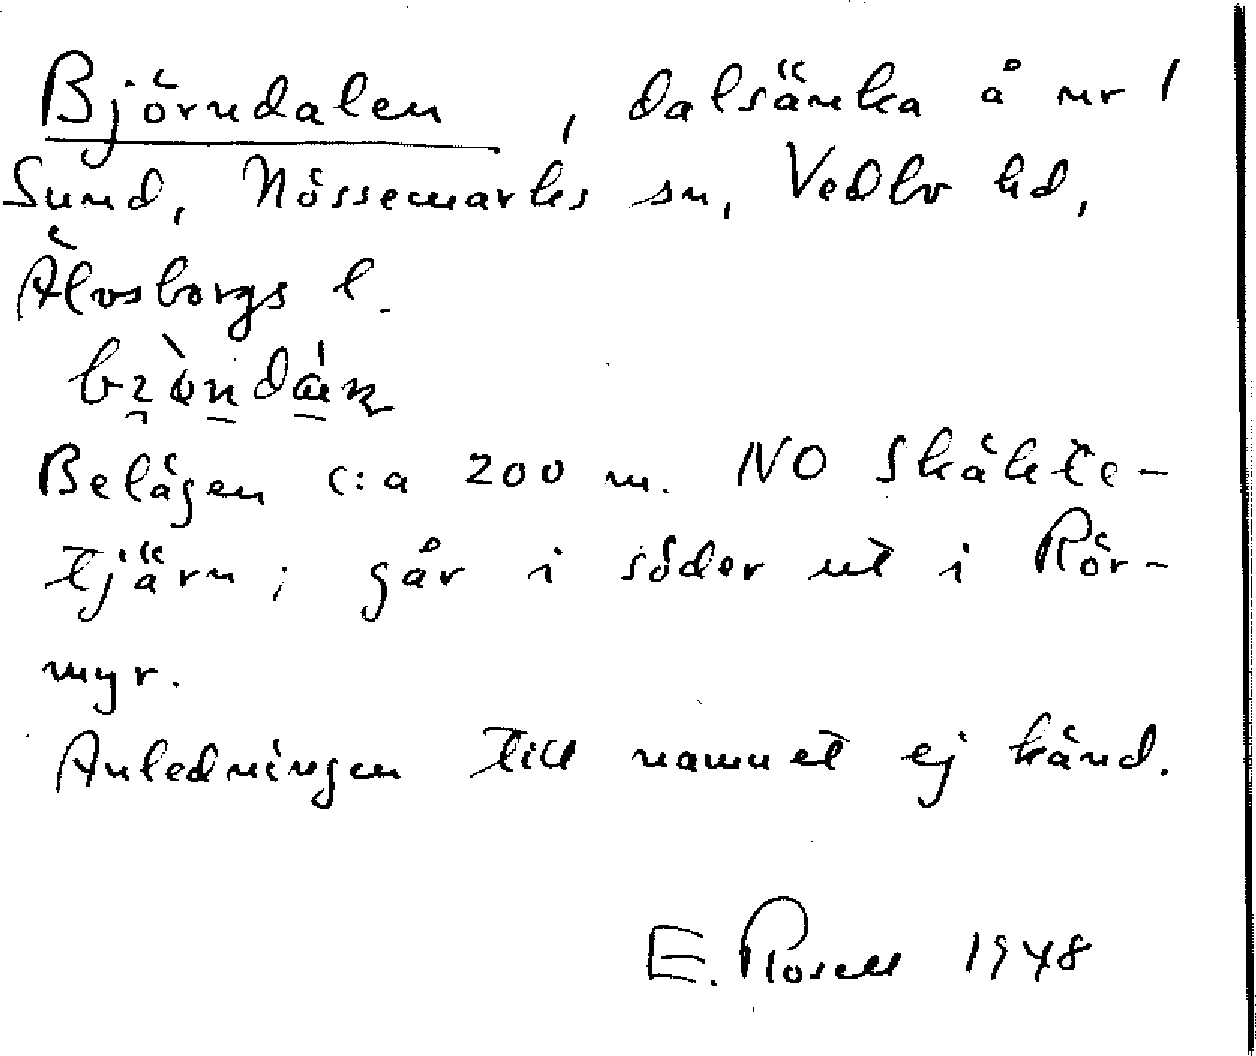 Björndalen, dalsänka å nr 1
Sund, Nössemarks sn, Vedbo hd,
Älvsborgs l.
Belägen c:a 200 m. NO Skäkte-
tjärn; går i söder ut i Rör-
myr.
Anledningen till namnet ej känd.
E. Rosell 1948